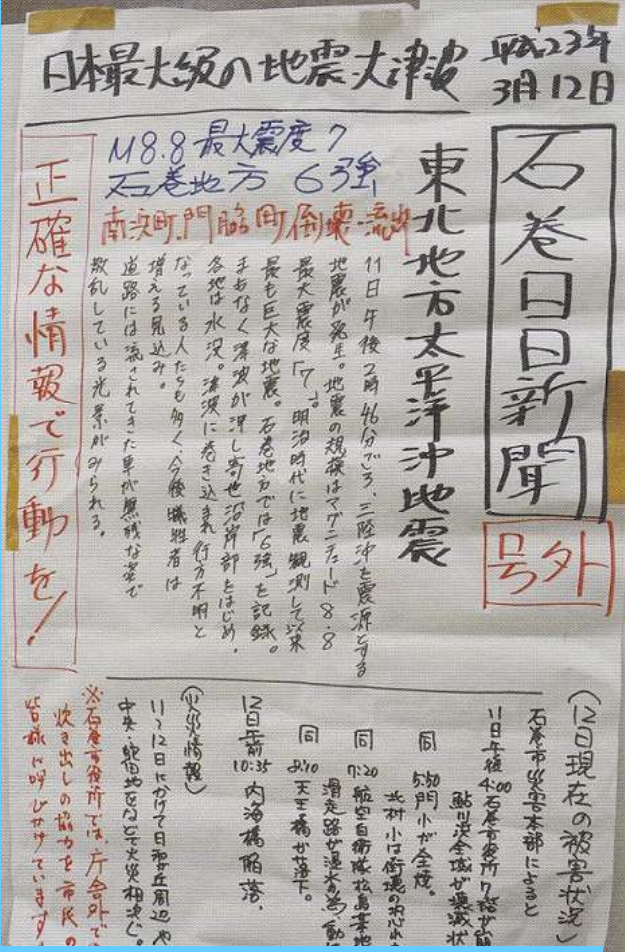 日本最大級の地震・大津波
平成23年
3月12日
石巻日日新聞
号外
東北地方太平洋沖地震
M8.8 最大震度7
石巻地方 6強
南浜町、門脇町倒壊・流出
11日午後2時46分ごろ、三陸沖を震源とする
地震が発生。地震の規模はマグニチュード8・8
最大震度「7」。明治時代に地震観測して以来
最も巨大な地震。石巻地方では「6強」を記録。
まもなく津波が押し寄せ沿岸部をはじめ、
各地は水没。津波に巻き込まれ行方不明と
なっている人たちも多く、今後犠牲者は
増える見込み。
道路には流されてきた車が無残な姿で
散乱している光景がみられる。
正確な情報で行動を!
(12日現在の被害状況)
石巻市災害本部によると
11日午後4:00 石巻市役所7
鮎川浜全域が壊滅状
同 5:50 門小が全焼。
北村小は倒壊の恐れ
同 7:20 航空自衛隊松島基地
滑走路が浸水の為
同 8:10 天王橋が落下。
12日午前10:35 内海橋陥落、
(火災情報)
11〜12日にかけて日和が丘周辺や
中央・蛇田地区などで火災相次ぐ。
※石巻市役所では、庁舎外で
炊き出しの協力を市民の
皆様に呼びかけています